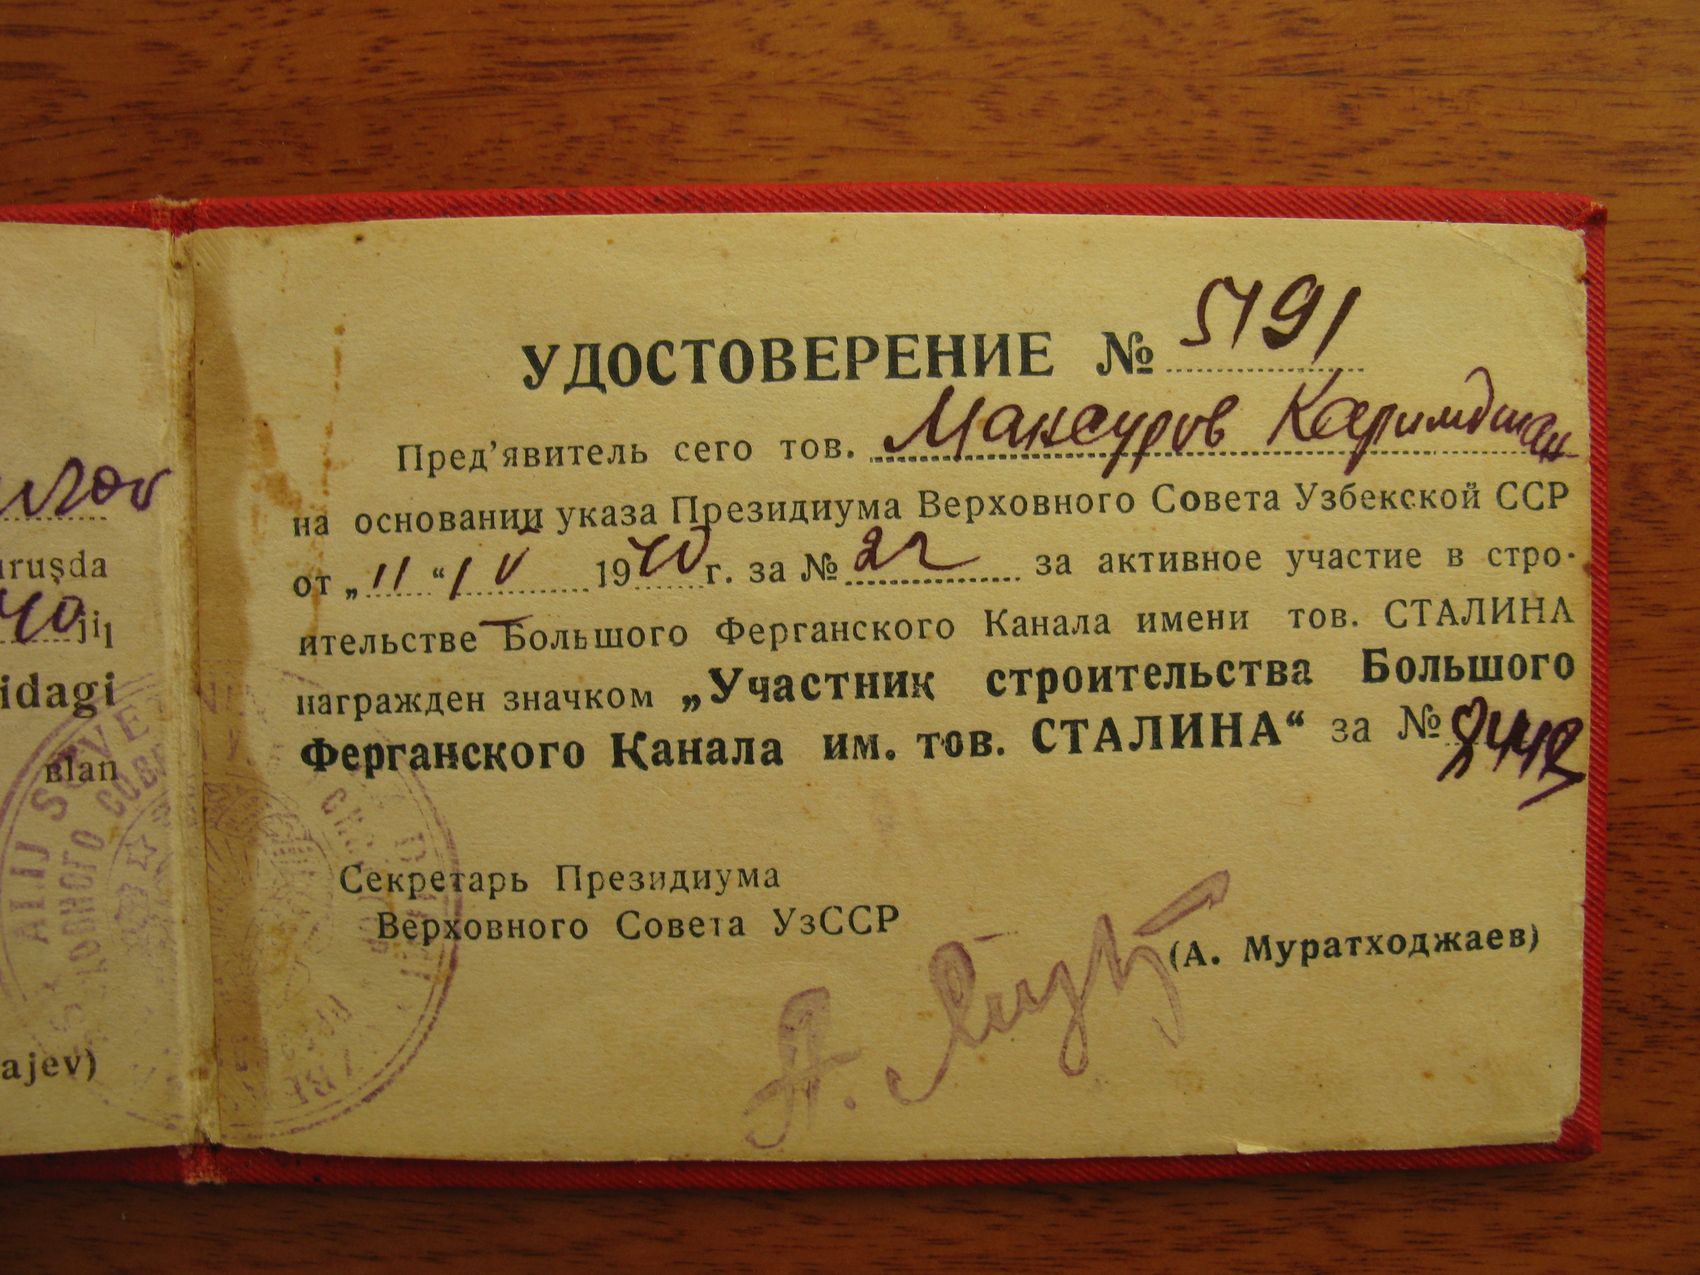 ruşda
40 jil
idagi
вlan
ajev)
УДОСТОВЕРЕНИЕ № 5191
Пред'явитель сего тов. Мансуров Каримджан
на основании указа Президиума Верховного Совета Узбекской ССР
от „11“ IV 1940 г. за № 22 за активное участие в стро-
ительстве Большого Ферганского Канала имени тов. СТАЛИНА
награжден значком „Участник строительства Большого
Ферганского Канала им. тов. СТАЛИНА“ за №
Секретарь Президиума
Верховного Совета УзССР
(А. Муратходжаев)